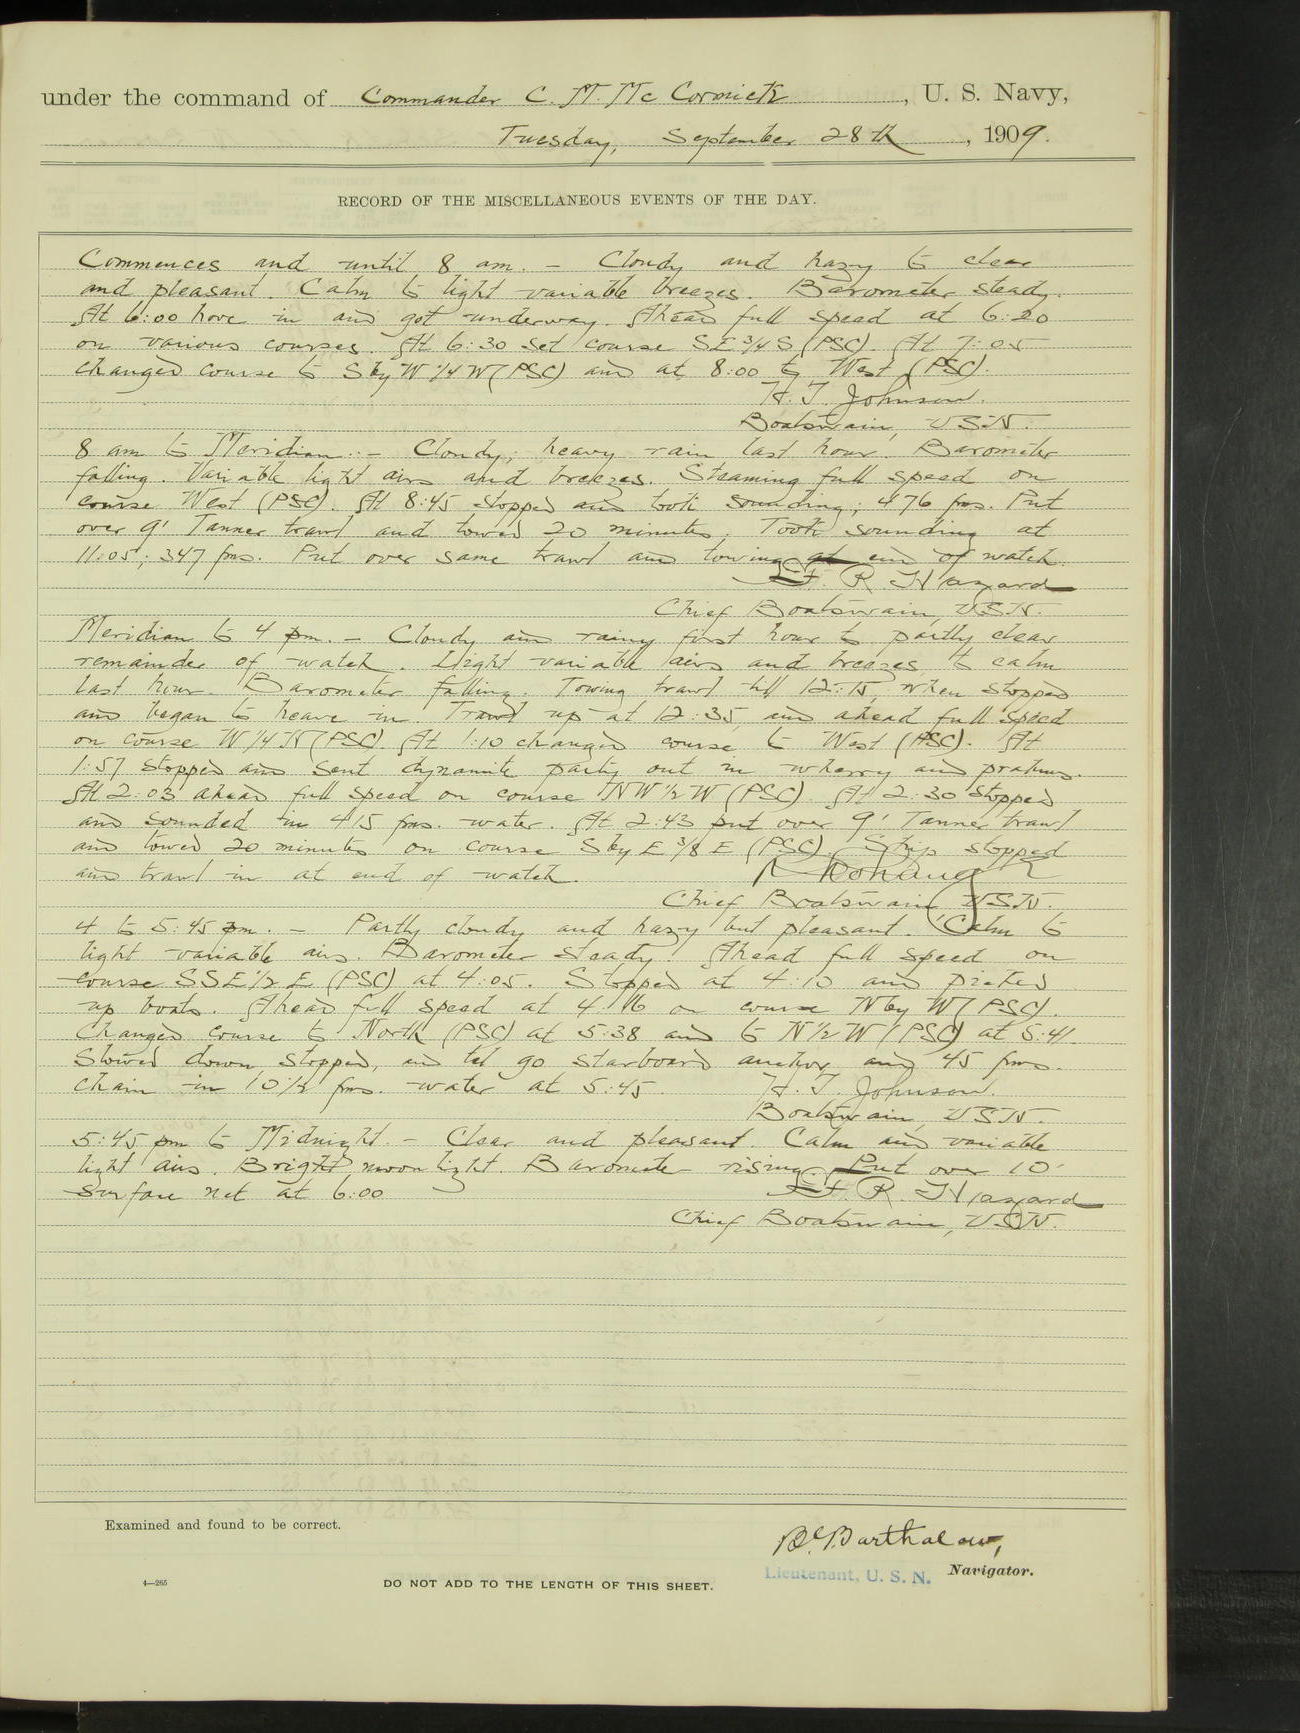 under the command of Commander C. M. McCormick, U. S. Navy,
Tuesday, September 28th, 1909.
RECORD OF THE MISCELLANEOUS EVENTS OF THE DAY.
Commences and until 8 am. - Cloudy and hazy to clear
and pleasant. Calm to light variable breezes. Barometer steady.
At 6:00 hove in and got underway. Ahead full speed at 6:20
on various courses. At 6:30 set course SE 3/4 S (PSC). At 7:05
changed course to S by W 1/4 W (PSC) and at 8:00 to West (PSC).
H. T. Johnson.
Boatswain, USN.
8 am to Meridian: - Cloudy; heavy rain last hour. Barometer
falling. Variable light airs and breezes. Steaming full speed on
course West (PSC). At 8:45 stopped and took sounding; 476 fms. Put
over 9' Tanner trawl and towed 20 minutes. Took sounding at
11:05; 347 fms. Put over same trawl and towing at end of watch.
F. R. Hazard
Chief Boatswain, USN.
Meridian to 4 pm. - Cloudy and rainy first hour to partly clear
remainder of watch. Light variable airs and breezes to calm
last hour. Barometer falling. Towing trawl till 12:15, when stopped
and began to heave in. Trawl up at 12:35, and ahead full speed
on course W 1/4 N (PSC). At 1:10 changed course to West (PSC). At
1:57 stopped and sent dynamite party out in wherry and prahms.
At 2:03 ahead full speed on course NW 1/2 W (PSC). At 2:30 stopped
and sounded in 415 fms. water. At 2:43 put over 9' Tanner trawl
and towed 20 minutes on course S by E 3/8 E (PSC). Ship stopped
and trawl in at end of watch.
Chief Boatswain USN.
4 to 5:45 pm. - Partly cloudy and hazy but pleasant. Calm to
light variable airs. Barometer steady. Ahead full speed on
course SSE 1/2 E (PSC) at 4:05. Stopped at 4:10 and picked
up boats. Ahead full speed at 4:16 on course N by W (PSC).
Changed course to North (PSC) at 5:38 and to N 1/2 W (PSC) at 5:41.
Slowed down, stopped, and let go starboard anchor and 45 fms.
chain in 10 1/2 fms. water at 5:45.
H. T. Johnson.
Boatswain, USN.
5:45 pm to Midnight. - Clear and pleasant. Calm and variable
light airs. Bright moonlight. Barometer rising. Put over 10'
surface net at 6:00
F. R. Hazard
Chief Boatswain, USN.
Examined and found to be correct.
Barthalow,
Lieutenant, U. S. N. Navigator.
4—265
DO NOT ADD TO THE LENGTH OF THIS SHEET.